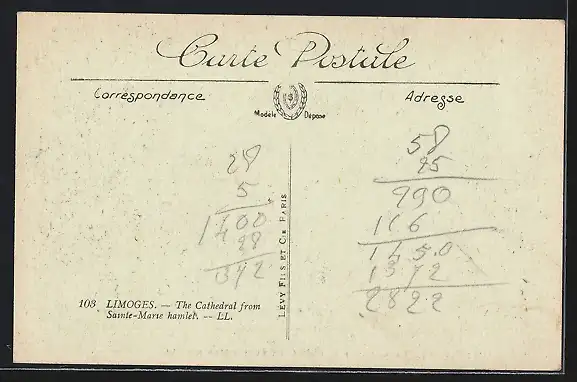 Carte Postale
Correspondance
Modèle Déposé
Adresse
28
5
1400
28
1372
58
25
290
116
1450
1372
2822
LÉVY FILS ET CIE PARIS
103 LIMOGES. — The Cathedral from
Sainte-Marie hamlet. -- LL.